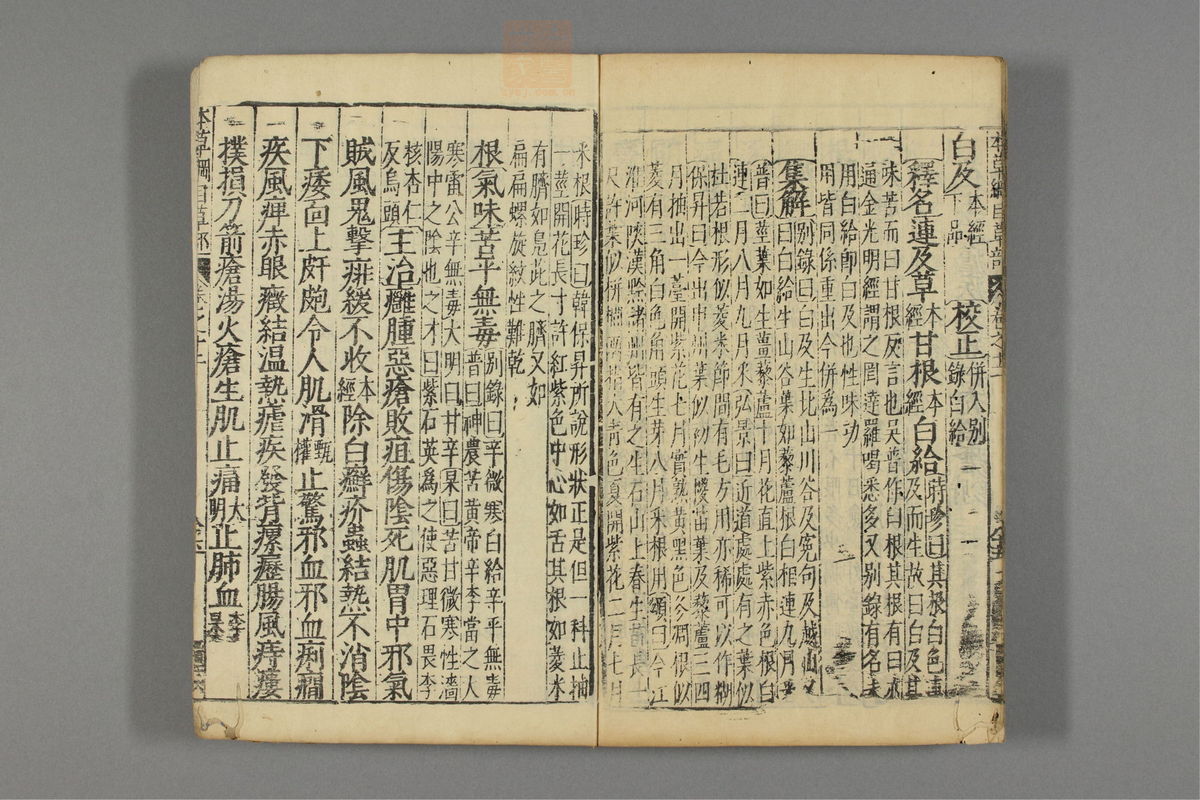 白及本經下品 校正併入別錄白給
釋名連及草本經甘根本經白給時珍曰其根白色連
及而生故曰白及其
味苦而曰甘根反言也吳普作臼根其根有臼
通金光明經謂之罔達羅喝悉多又別錄有名未
用白給卽白及也性味功
用皆同係重出今併爲一
集解別錄曰白及生北山川谷及寃句及越山
又曰白給生山谷葉如藜蘆根白相連九月采
普曰莖葉如生薑藜蘆十月花直上紫赤色根白
連二月八月九月采弘景曰近道處處有之葉似
杜若根形似菱米節間有毛方用亦稀可以作糊
保昇曰今出申州葉似初生椶苗葉及藜蘆三四
月抽出一薹開紫花七月實熟黃黑色冬凋根似
菱有三角白色角頭生芽八月采根用頌曰今江
淮河陝漢黔諸州皆有之生石山上春生苗長一
尺許葉似栟櫚兩指大靑色夏開紫花二月七月
采根時珍曰韓保昇所說形狀正是但一科止抽
一莖開花長寸許紅紫色中心如舌其根如菱米
有臍如鳧茈之臍又如
扁扁螺旋紋性難乾
根氣味苦平無毒別錄曰辛微寒白給辛平無毒
普曰神農苦黃帝辛李當之大
寒雷公辛無毒大明曰甘辛杲曰苦甘微寒性濇
陽中之陰也之才曰紫石英爲之使惡理石畏李
核杏仁
反烏頭主治癰腫惡瘡敗疽傷陰死肌胃中邪氣
賊風鬼擊痱緩不收本經除白癬疥蟲結熱不消陰
下痿面上皯皰令人肌滑甄權止驚邪血邪血痢癎
疾風痺赤眼癥結溫熱瘧疾發背瘰癧腸風痔瘻
撲損刀箭瘡湯火瘡生肌止痛大明止肺血李杲
本草綱目草部